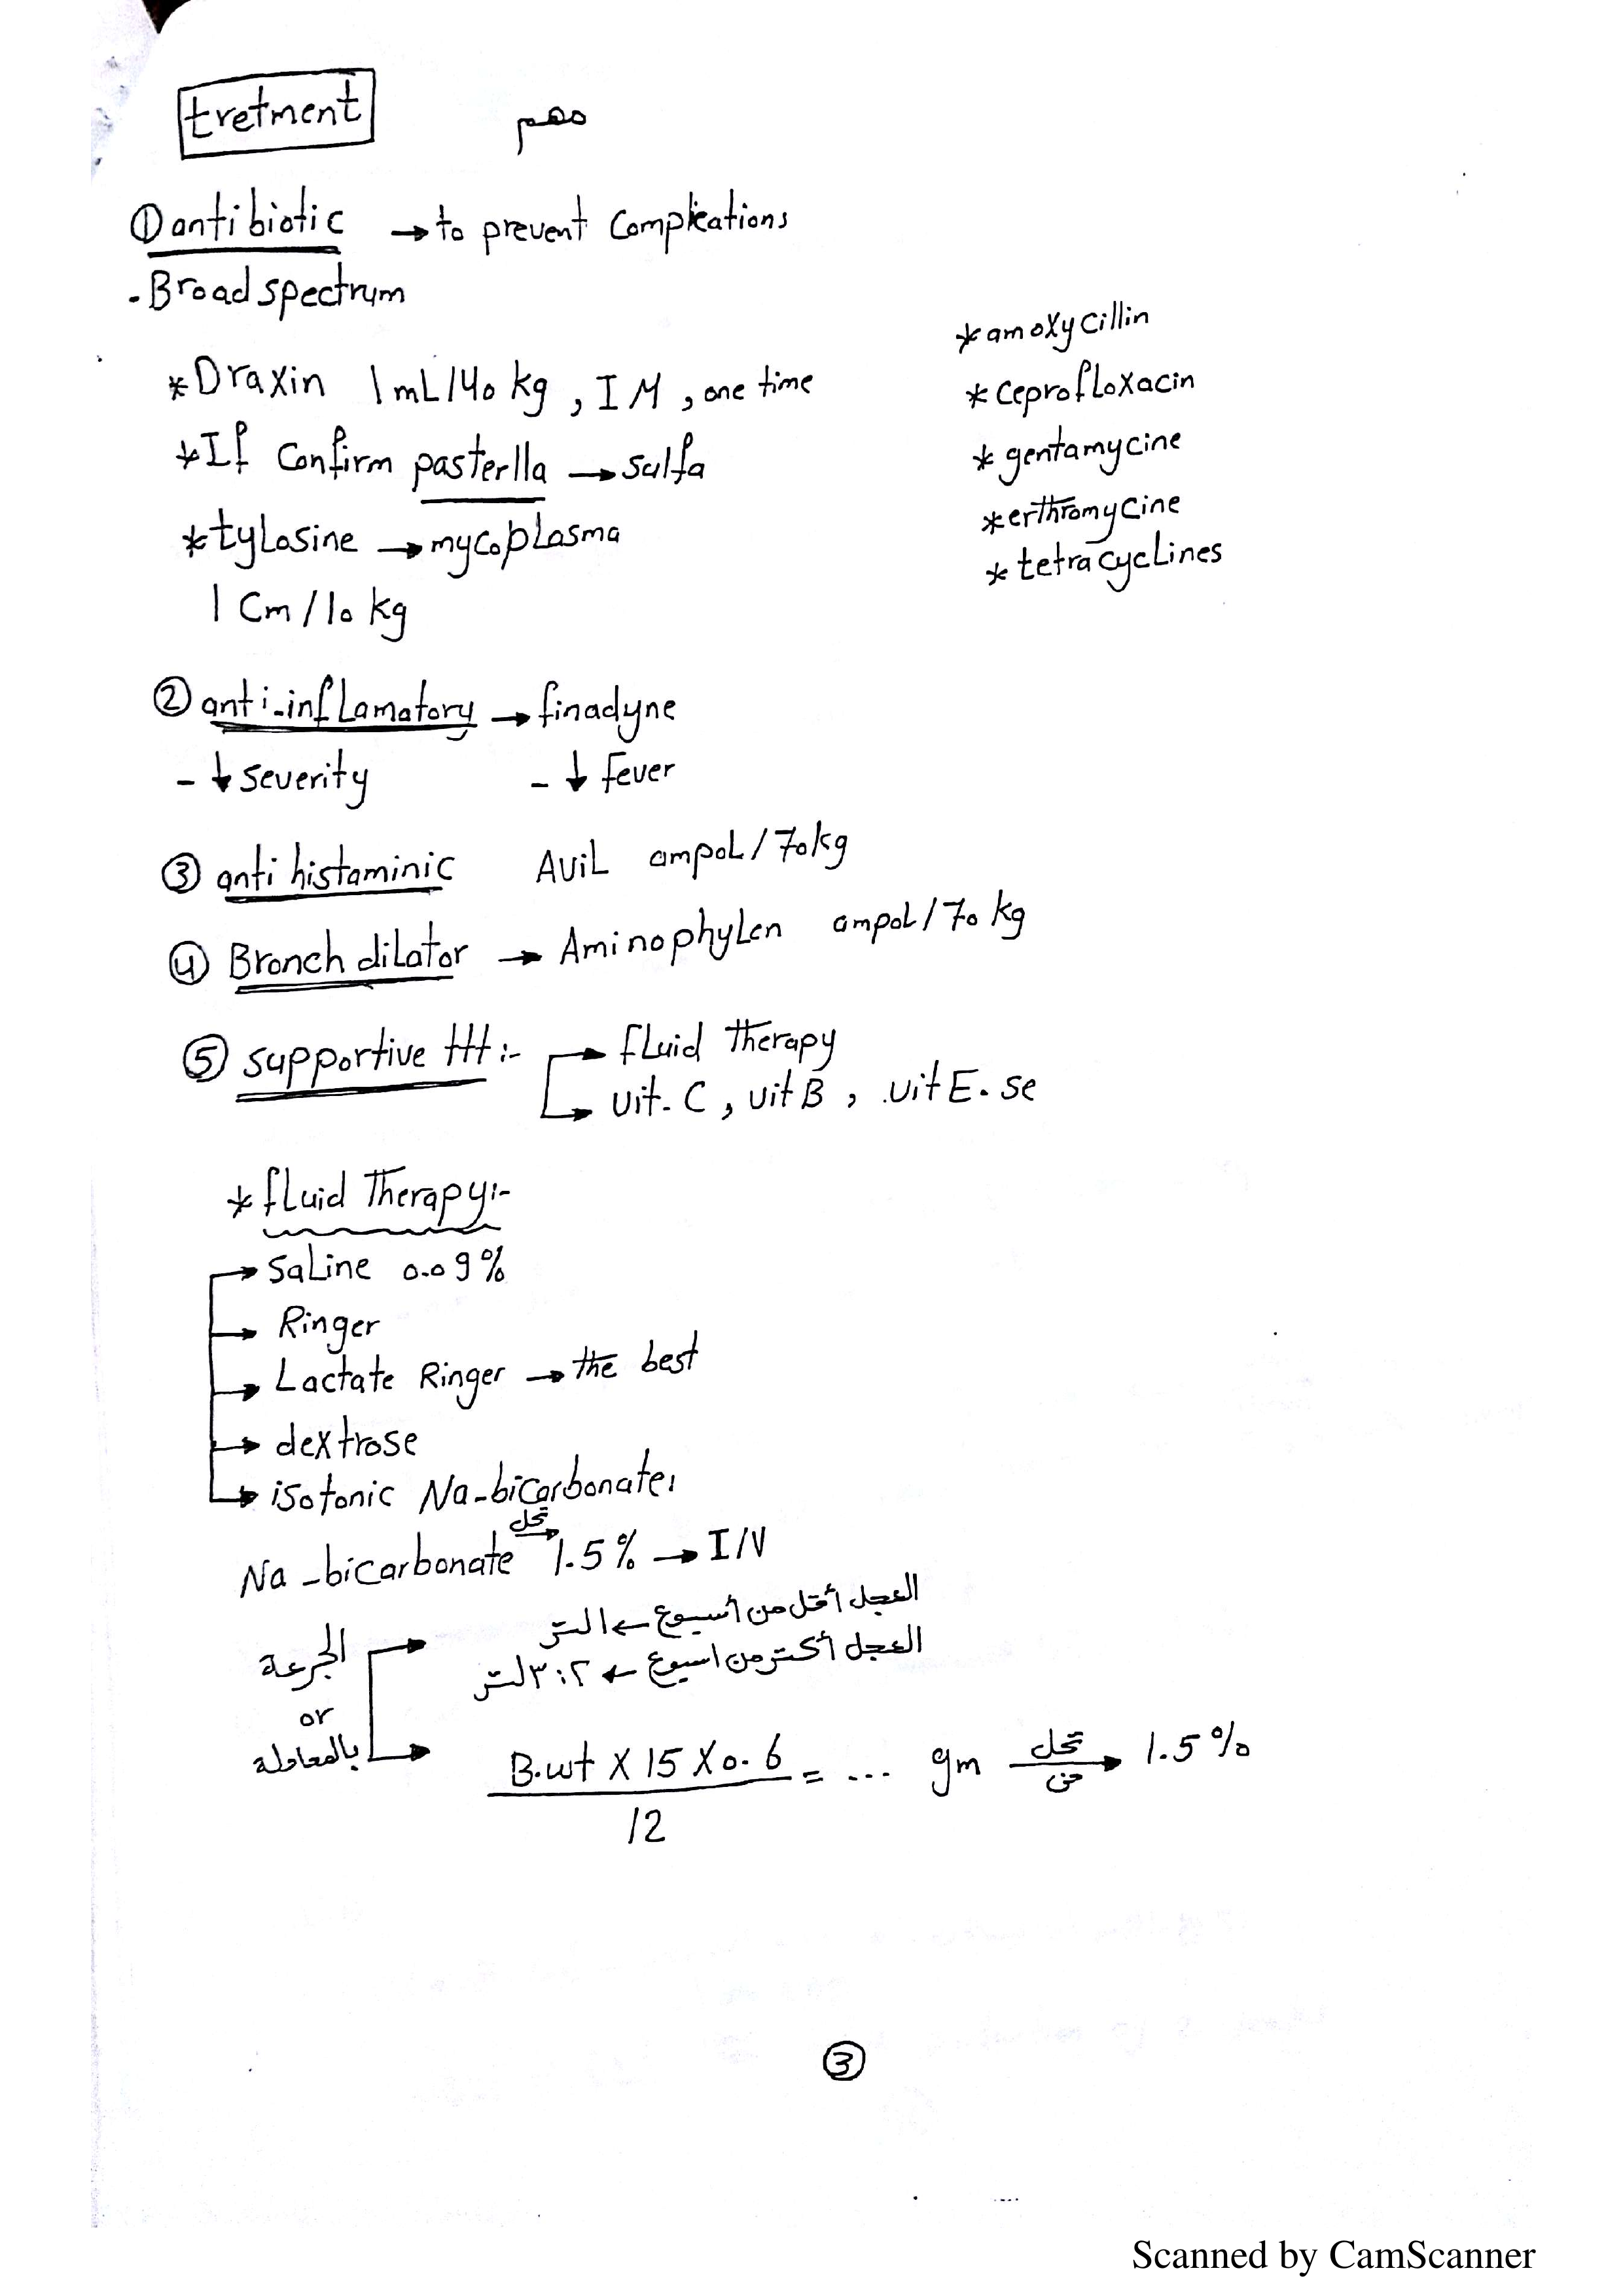 tretment مهم
① antibiotic → to prevent Complications
- Broad spectrum
* Draxin 1 mL/40 kg , IM , one time
* If Confirm pasterlla → sulfa
* tylosine → mycoplasma
1 Cm / 10 kg
* amoxycillin
* ceprofloxacin
* gentamycine
* erthromycine
* tetracyclines
② anti-inflamatory → finadyne
- ↓ severity - ↓ fever
③ anti histaminic Avil ampol / 70 kg
④ Bronch dilator → Aminophylen ampol / 70 kg
⑤ supportive ttt :- → fluid therapy
→ vit. C , vit B , vit E. se
* fluid therapy:-
→ saline 0.09%
→ Ringer
→ Lactate Ringer → the best
→ dextrose
→ isotonic Na-bicarbonate,
Na-bicarbonate تحل→ 1.5% → I/V
الجرعة → العجل أقل من أسبوع ← ١ لتر
العجل أكتر من اسبوع ← ٢ : ٣ لتر
or
بالمعادلة → B.wt X 15 X 0.6 = ... gm تحل في → 1.5%
12
③
Scanned by CamScanner